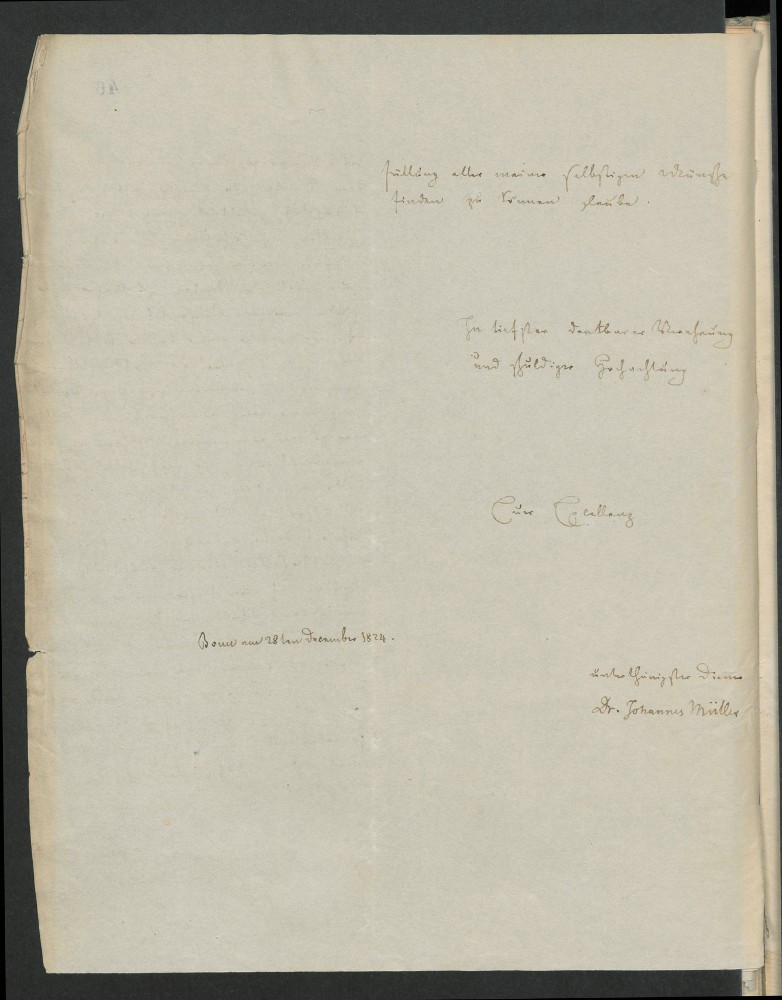 füllung aller meiner selbstigen Wünsche
finden zu können glaube.
In tiefster dankbarer Verehrung
und schuldiger Hochachtung
Euer Excellenz
Bonn am 28ten December 1824.
unterthänigster Diener
Dr. Johannes Müller